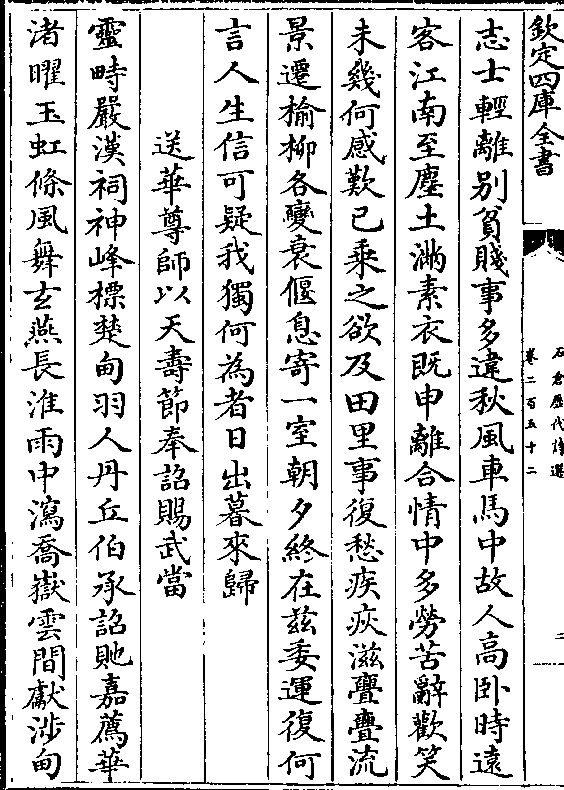 欽定四庫全書
石倉歷代詩選
卷二百五十二
二
志士輕離别貧賤事多違秋風車馬中故人高卧時遠
客江南至塵土滿素衣既申離合情中多勞苦辭歡笑
未幾何感歎已乘之欲及田里事復愁疾疢滋亹亹流
景遷榆柳各變衰偃息寄一室朝夕終在兹委運復何
言人生信可疑我獨何為者日出暮來歸
送華尊師以天壽節奉詔賜武當
靈畤嚴漢祠神峰標楚甸羽人丹丘伯承詔貤嘉薦華
渚曜玉虹條風舞玄燕長淮雨中瀉喬嶽雲間獻涉甸